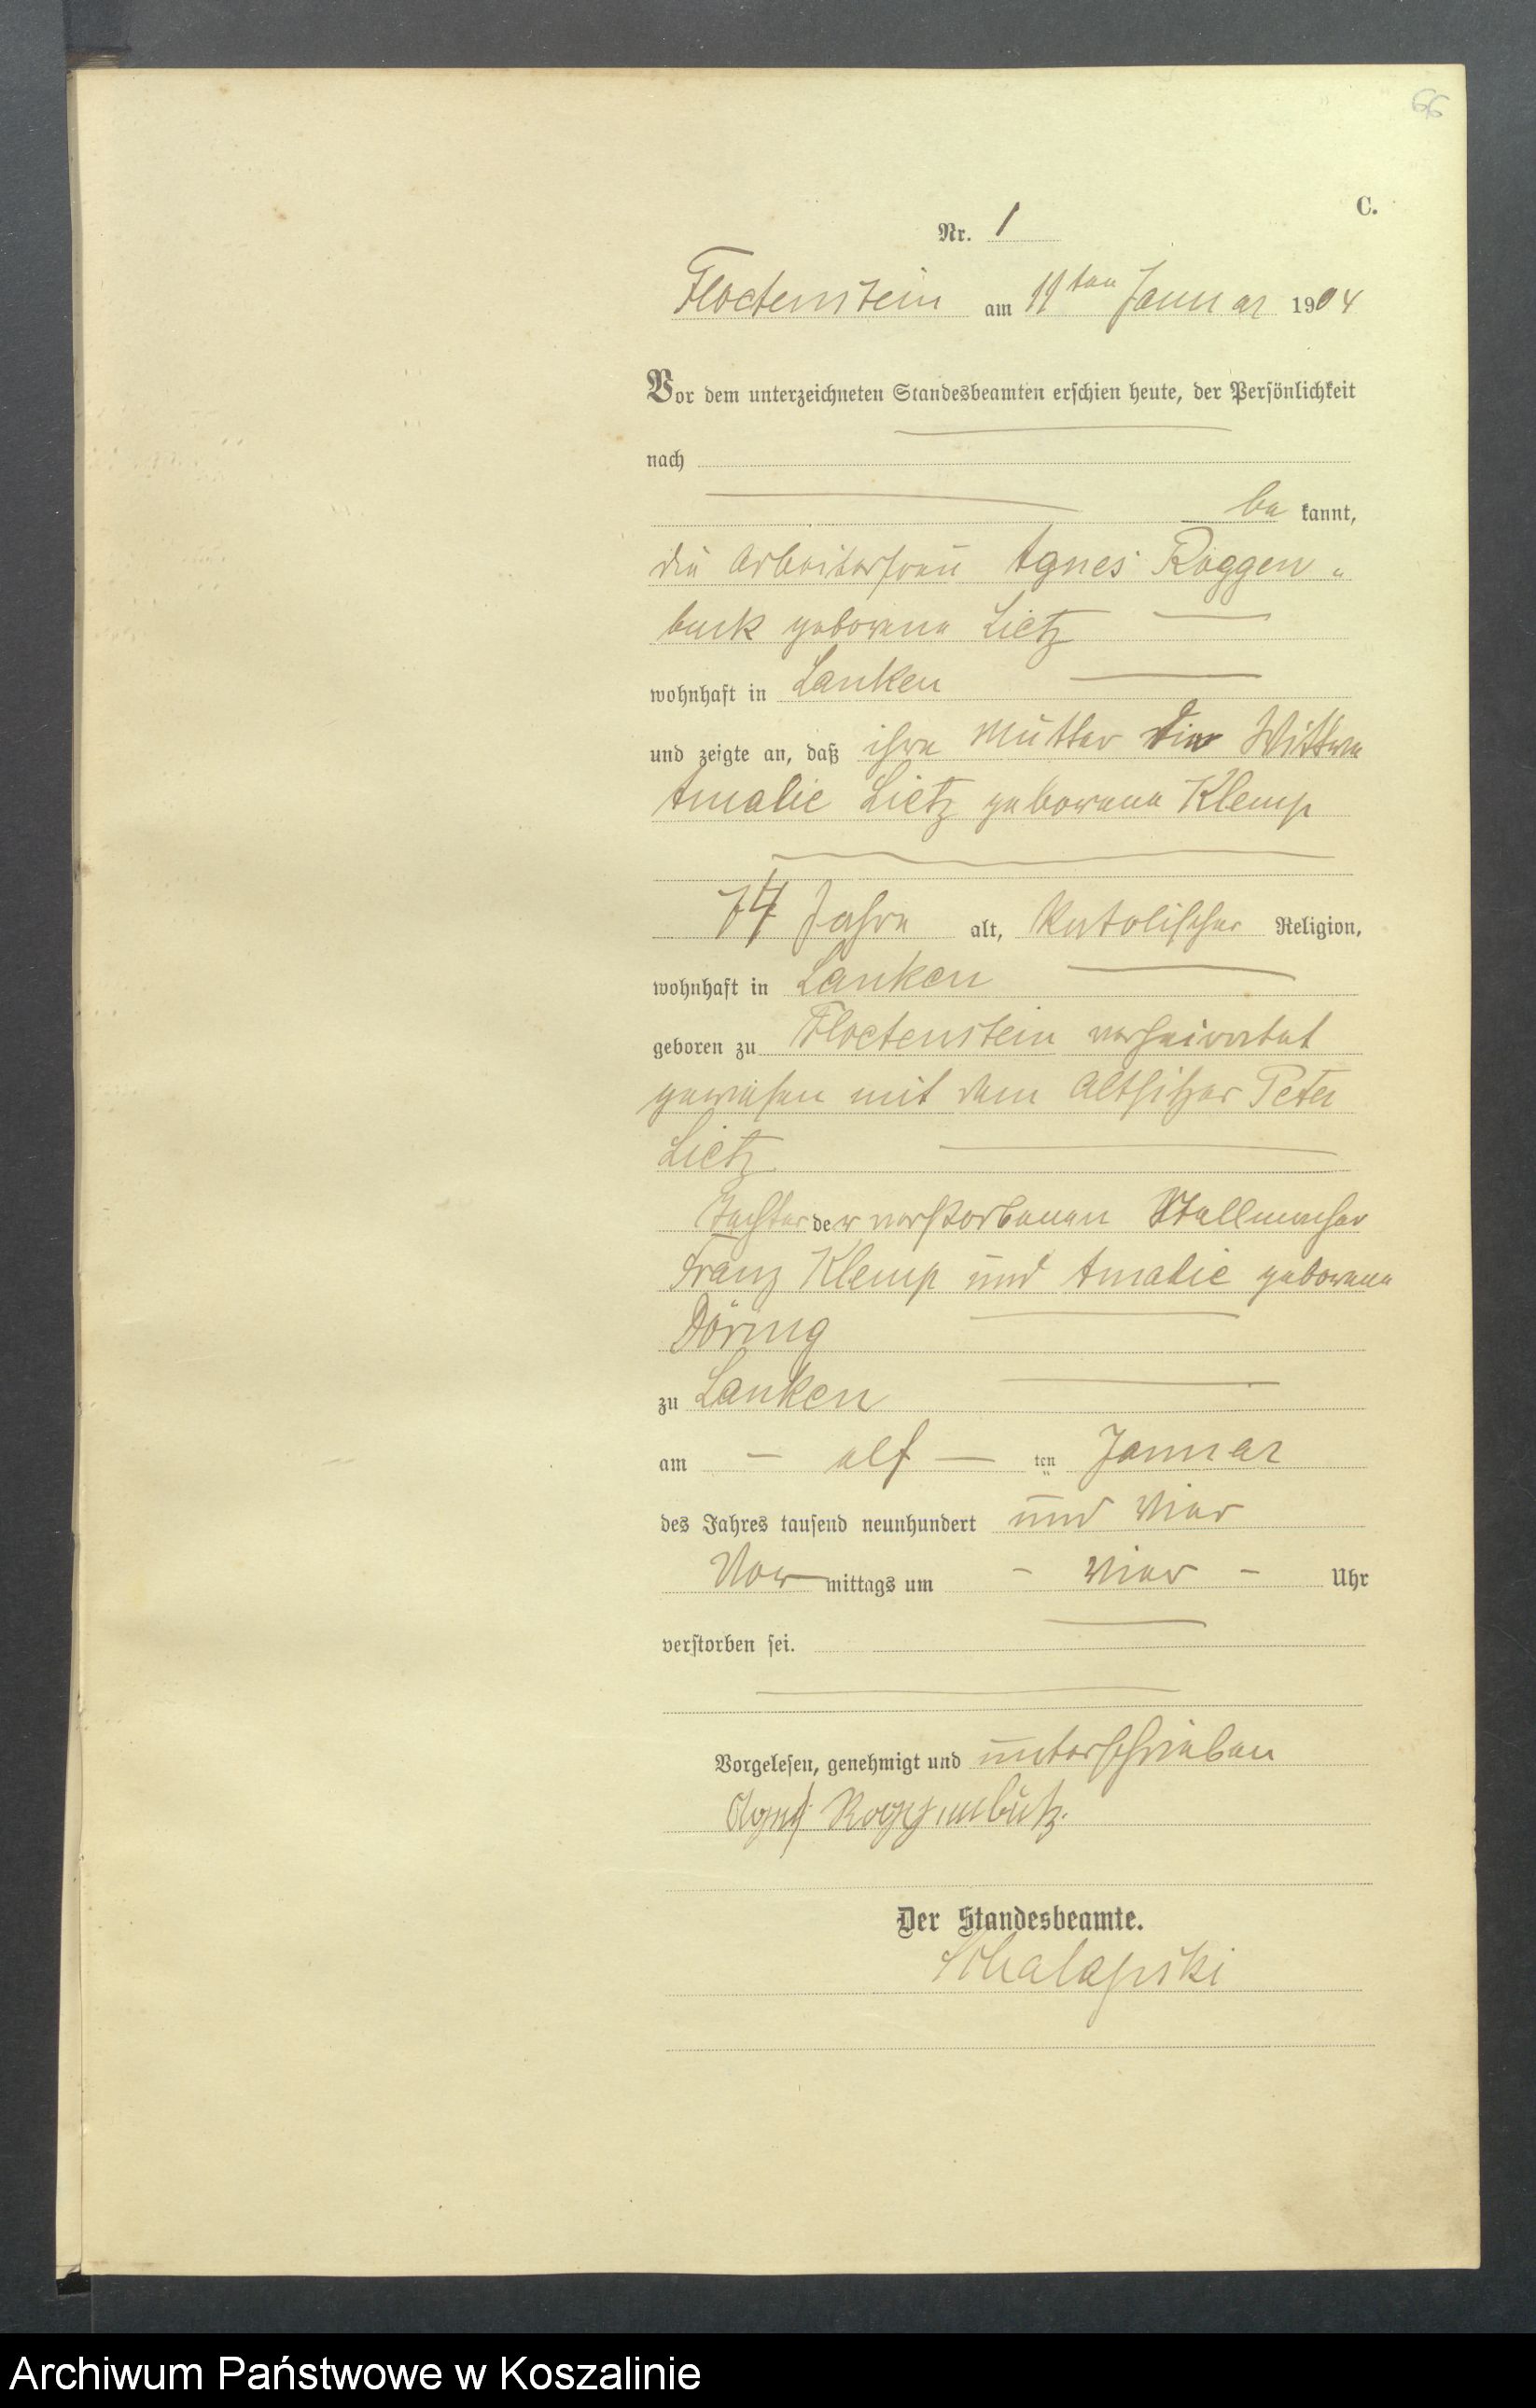 66
C.
Nr. 1
Floetenstein am 11ten Januar 1904
Vor dem unterzeichneten Standesbeamten erschien heute, der Persönlichkeit
nach
be kannt,
die Arbeiterfrau Agnes Roggen„
buck geborene Lietz
wohnhaft in Lanken
und zeigte an, daß ihre Mutter die Wittwe
Amalie Lietz geborene Klemp
74 Jahre alt, katolischer Religion,
wohnhaft in Lanken
geboren zu Floetenstein verheirathet
gewesen mit dem Altsitzer Peter
Lietz
Tochter der verstorbenen Stellmacher
Franz Klemp und Amalie geborene
Döring
zu Lanken
am – elf – ten Januar
des Jahres tausend neunhundert und vier
Vor mittags um – vier – Uhr
verstorben sei.
Vorgelesen, genehmigt und unterschrieben
Agnes
Der Standesbeamte.
Archiwum Państwowe w Koszalinie